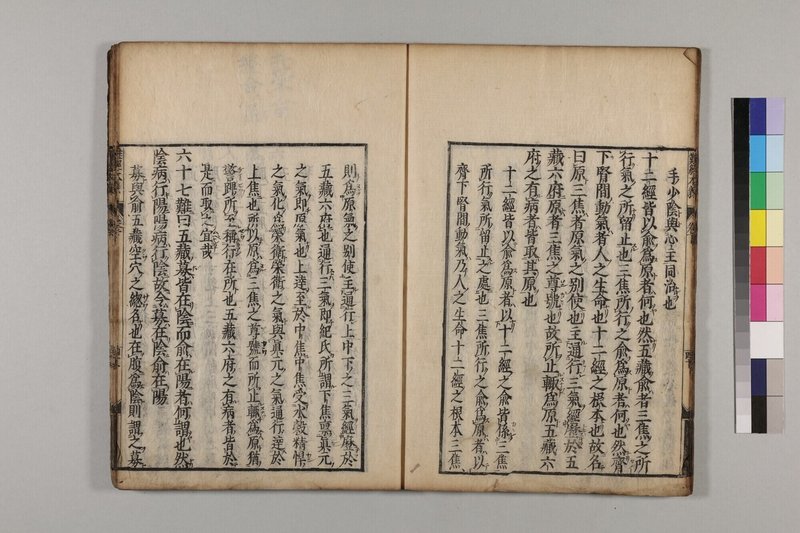 手少陰與心主同治也
十二經皆以兪爲原者何也然五藏兪者三焦之所
行氣之所留止也三焦所行之兪爲原者何也然齊
下腎間動氣者人之生命也十二經之根本也故名
曰原三焦者原氣之别使也主通行三氣經歷於五
藏六府原者三焦之尊號也故所止輙爲原五藏六
府之有病者皆取其原也
十二經皆以兪爲原者以十二經之兪皆係三焦
所行氣所留止之處也三焦所行之兪爲原者以
齊下腎間動氣乃人之生命十二經之根本三焦
則爲原氣之别使主通行上中下之三氣經歷於
五藏六府也通行三氣即紀氏所謂下焦稟眞元
之氣即原氣也上達至於中焦中焦受水穀精悍
之氣化爲榮衛榮衛之氣與眞元之氣通行達於
上焦也所以原爲三焦之尊號而所止輙爲原猶
警蹕所至稱行在所也五藏六府之有病者皆於
是而取之宜哉
六十七難曰五藏募皆在陰而兪在陽者何謂也然
陰病行陽陽病行陰故令募在陰兪在陽
募與兪五藏空穴之總名也在腹爲陰則謂之募